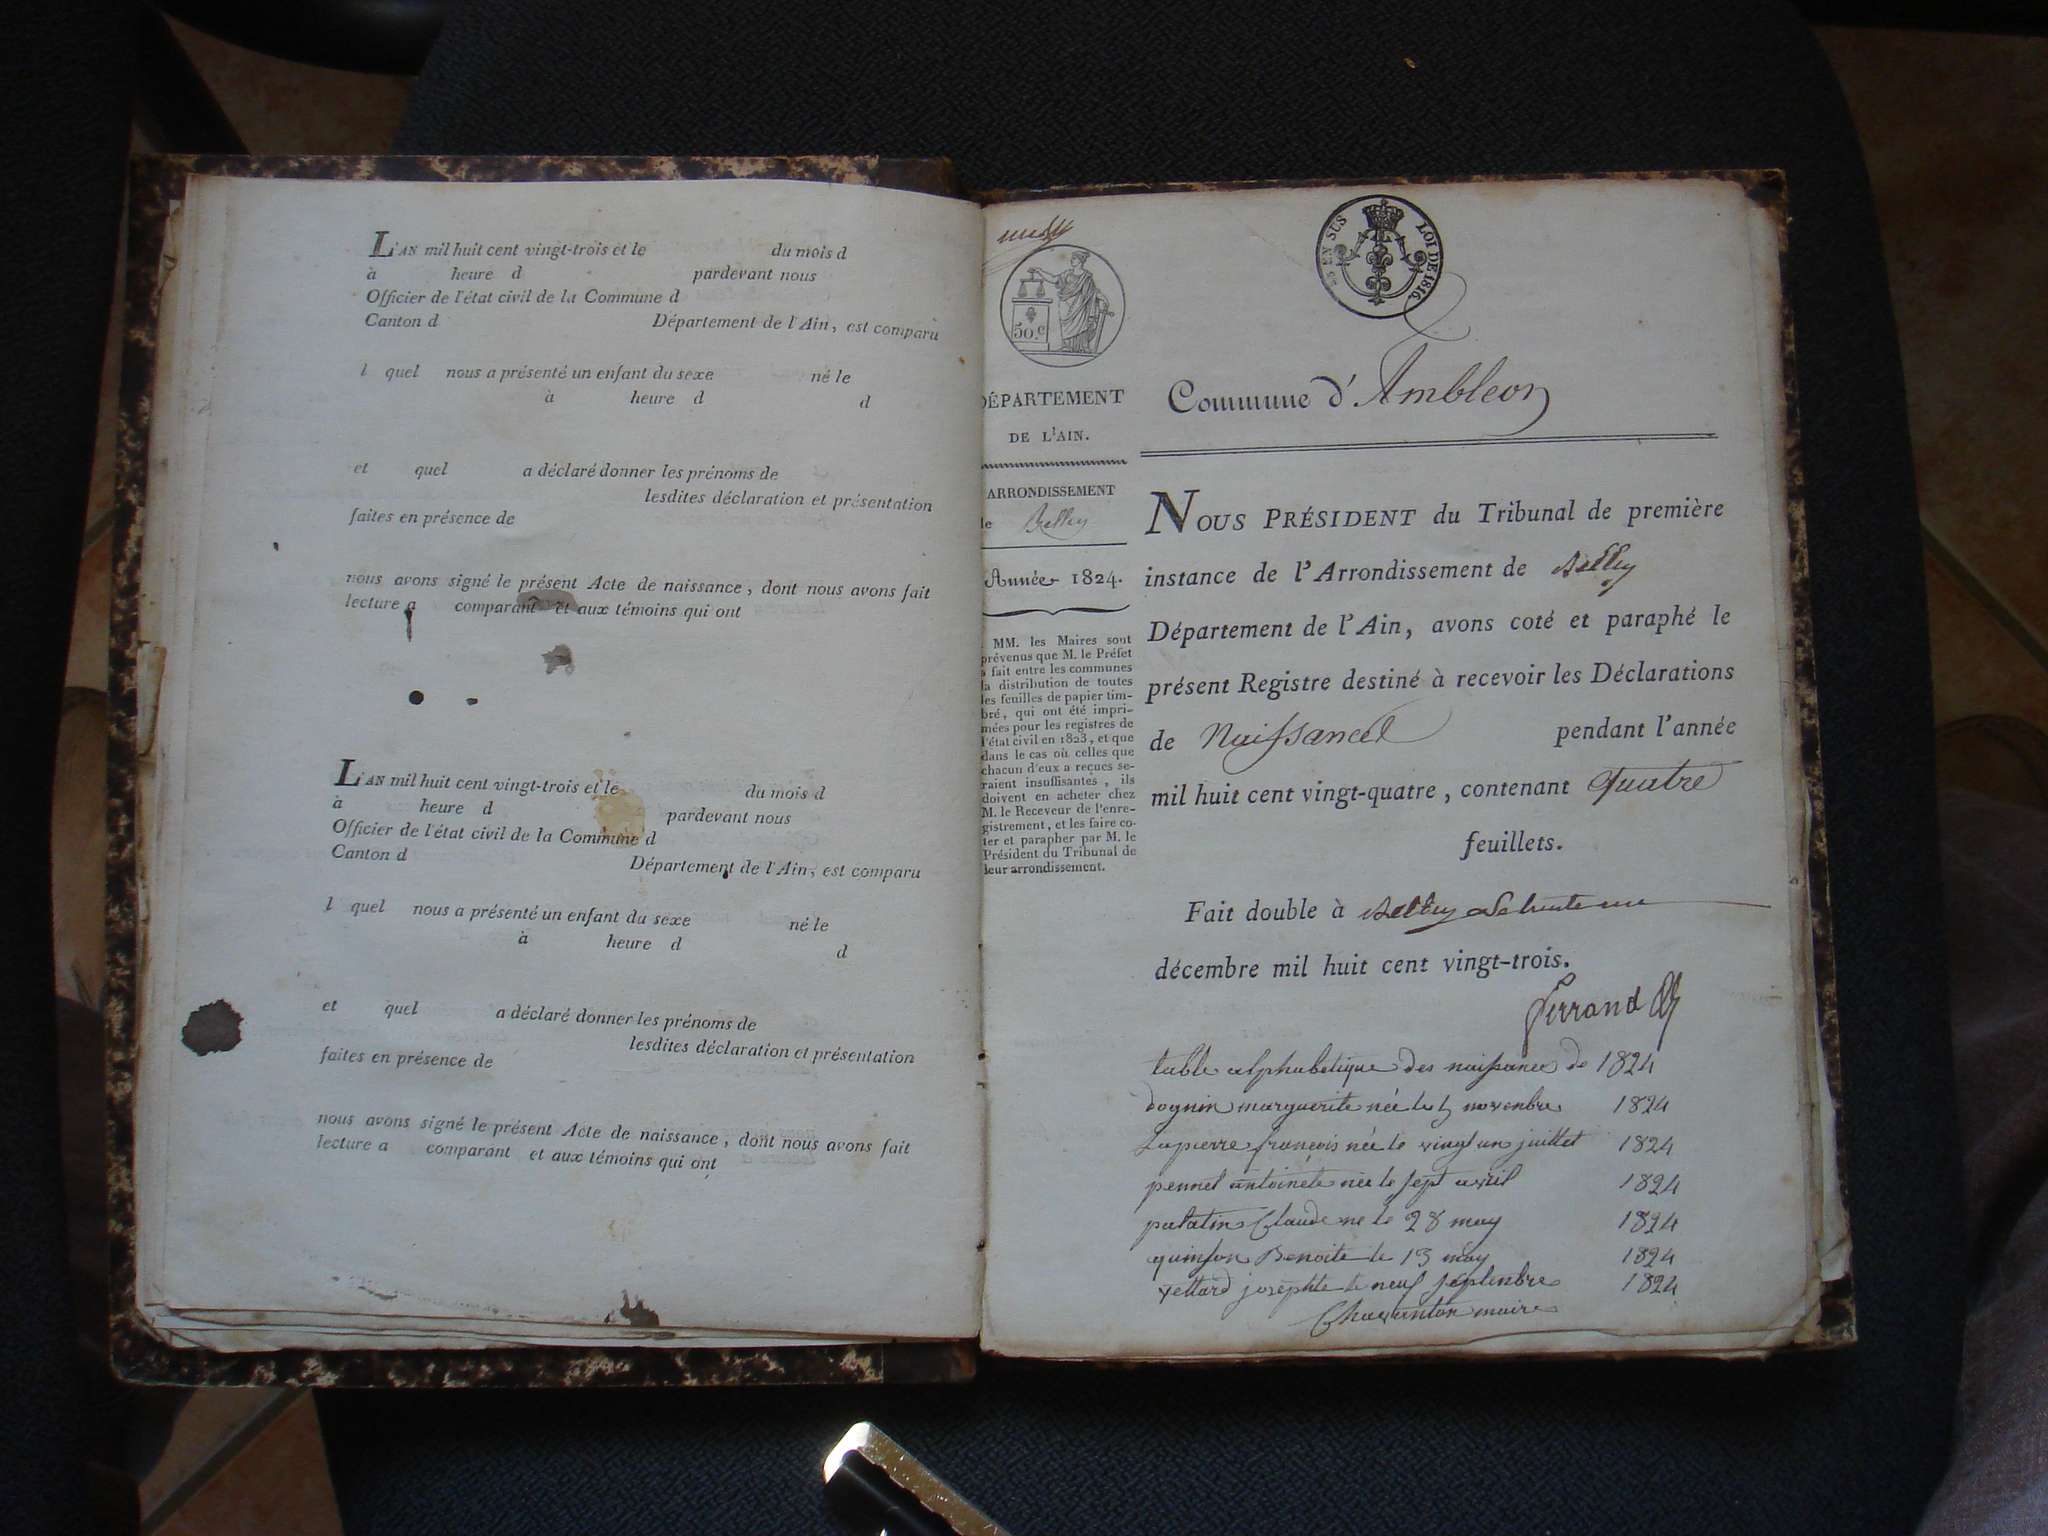 L'AN mil huit cent vingt-trois et le du mois d
à heure d pardevant nous
Officier de l'état civil de la Commune d
Canton d Département de l'Ain, est comparu
l quel nous a présenté un enfant du sexe né le
à heure d d
et quel a déclaré donner les prénoms de
lesdites déclaration et présentation
faites en présence de
nous avons signé le présent Acte de naissance, dont nous avons fait
lecture a comparant et aux témoins qui ont
L'AN mil huit cent vingt-trois et le du mois d
à heure d pardevant nous
Officier de l'état civil de la Commune d
Canton d Département de l'Ain, est comparu
l quel nous a présenté un enfant du sexe né le
à heure d d
et quel a déclaré donner les prénoms de
lesdites déclaration et présentation
faites en présence de
nous avons signé le présent Acte de naissance, dont nous avons fait
lecture a comparant et aux témoins qui ont
50.c
DÉPARTEMENT
DE L'AIN.
ARRONDISSEMENT
de Belley
Année 1824.
MM. les Maires sont
prévenus que M. le Préfet
a fait entre les communes
la distribution de toutes
les feuilles de papier tim-
bré, qui ont été impri-
mées pour les registres de
l'état civil en 1823, et que
dans le cas où celles que
chacun d'eux a reçues se-
raient insuffisantes, ils
doivent en acheter chez
M. le Receveur de l'enre-
gistrement, et les faire co-
ter et parapher par M. le
Président du Tribunal de
leur arrondissement.
EN SUS LOI DE 1816.
Commune d'Ambleon
NOUS PRÉSIDENT du Tribunal de première
instance de l'Arrondissement de Belley
Département de l'Ain, avons coté et paraphé le
présent Registre destiné à recevoir les Déclarations
de Naissances pendant l'année
mil huit cent vingt-quatre, contenant quatre
feuillets.
Fait double à Belley le trente un
décembre mil huit cent vingt-trois.
table alphabetique des naissance de 1824
dognin marguerite née le 5 novenbre 1824
Lapierre françois née le vingt un juillet 1824
pennet antoinete née le sept avril 1824
palatin Claude ne le 28 may 1824
quinson Benoite le 13 may 1824
vettard josephte le neuf septenbre 1824
Charanton maire